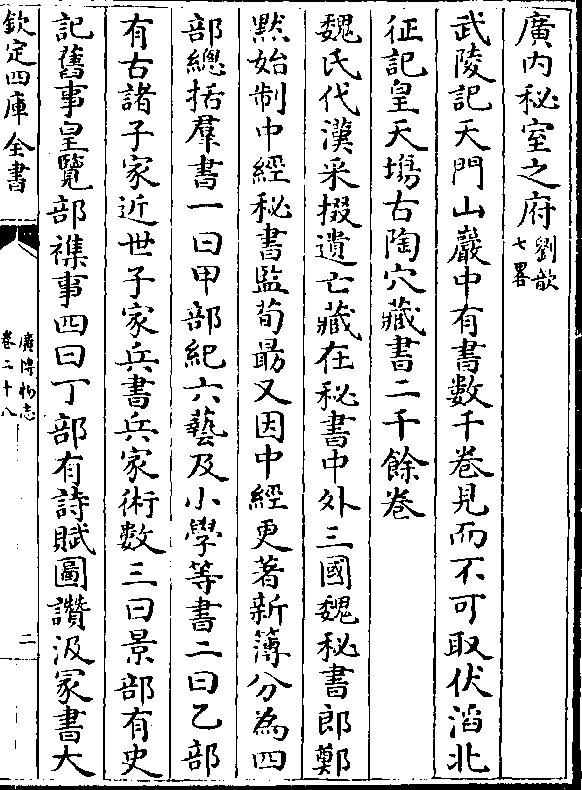 廣内秘室之府劉歆七畧
武陵記天門山巖中有書數千卷見而不可取伏滔北
征記皇天塢古陶穴藏書二千餘卷
魏氏代漢采掇遺亡藏在秘書中外三國魏秘書郎鄭
黙始制中經秘書監荀勗又因中經更著新簿分為四
部總括羣書一曰甲部紀六藝及小學等書二曰乙部
有古諸子家近世子家兵書兵家術數三曰景部有史
記舊事皇覽部襍事四曰丁部有詩賦圖讚汲冢書大
欽定四庫全書
廣博物志
卷二十八
二